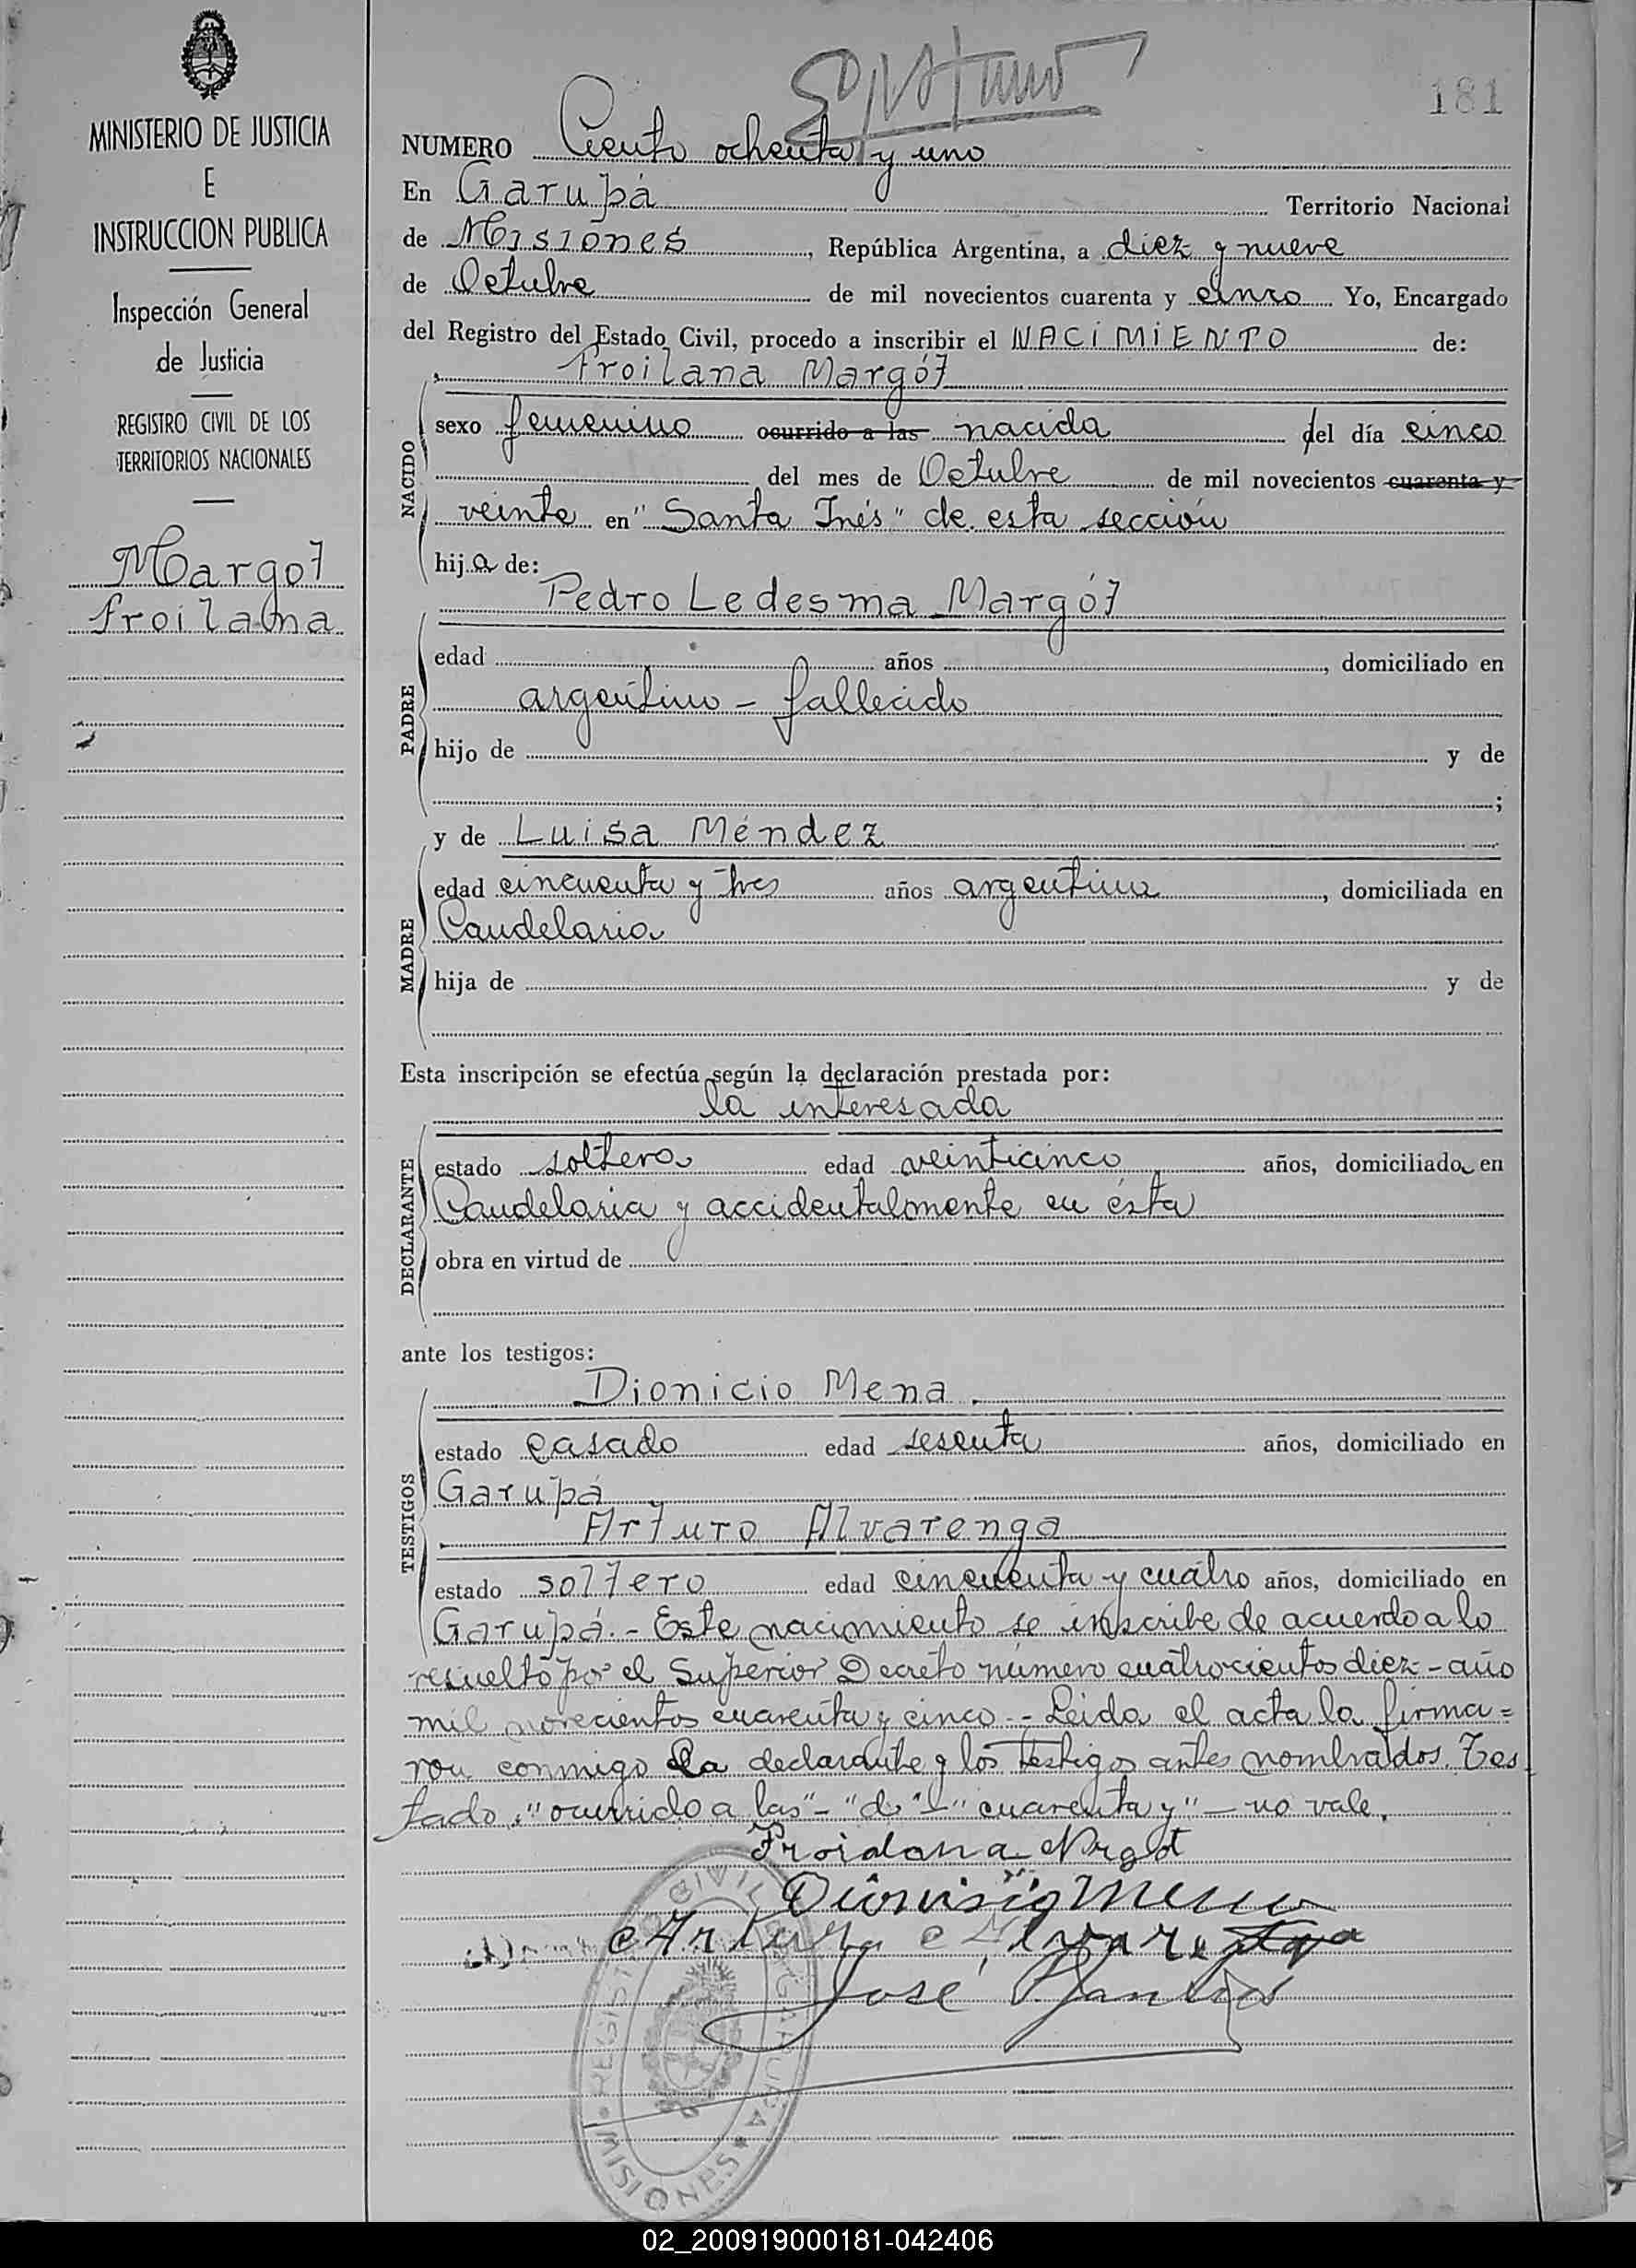 181
MINISTERIO DE JUSTICIA
E
INSTRUCCION PUBLICA
Inspección General
de Justicia
REGISTRO CIVIL DE LOS
TERRITORIOS NACIONALES
Margot
Froilana
NUMERO Ciento ochenta y uno
En Garupá Territorio Nacional
de Misiones, República Argentina, a diez y nueve
de Octubre de mil novecientos cuarenta y cinco Yo, Encargado
del Registro del Estado Civil, procedo a inscribir el NACIMIENTO de:
Froilana Margót
NACIDO
sexo femenino ocurrido a las nacida del día cinco
del mes de Octubre de mil novecientos cuarenta y
veinte en "Santa Inés" de esta sección
hija de:
Pedro Ledesma Margót
PADRE
edad años, domiciliado en
argentino - fallecido
hijo de y de
;
y de Luisa Méndez
MADRE
edad cincuenta y tres años argentina, domiciliada en
Candelaria
hija de y de
Esta inscripción se efectúa según la declaración prestada por:
la interesada
DECLARANTE
estado soltera edad veinticinco años, domiciliada en
Candelaria y accidentalmente en ésta
obra en virtud de
ante los testigos:
Dionicio Mena
TESTIGOS
estado casado edad sesenta años, domiciliado en
Garupá
Arturo Alvarenga
estado soltero edad cincuenta y cuatro años, domiciliado en
Garupá.- Este nacimiento se inscribe de acuerdo a lo
resuelto por el Superior Decreto número cuatrocientos diez - año
mil novecientos cuarenta y cinco.- Leida el acta la firma=
ron conmigo la declarante y los testigos antes nombrados. Tes
tado: "ocurrido a las" - "d" - "cuarenta y" - no vale.
Froidana Mrgot
Dionisio Mena
Arturo Alvarenga
José
REGISTRO CIVIL GARUPA
MISIONES
02_200919000181-042406